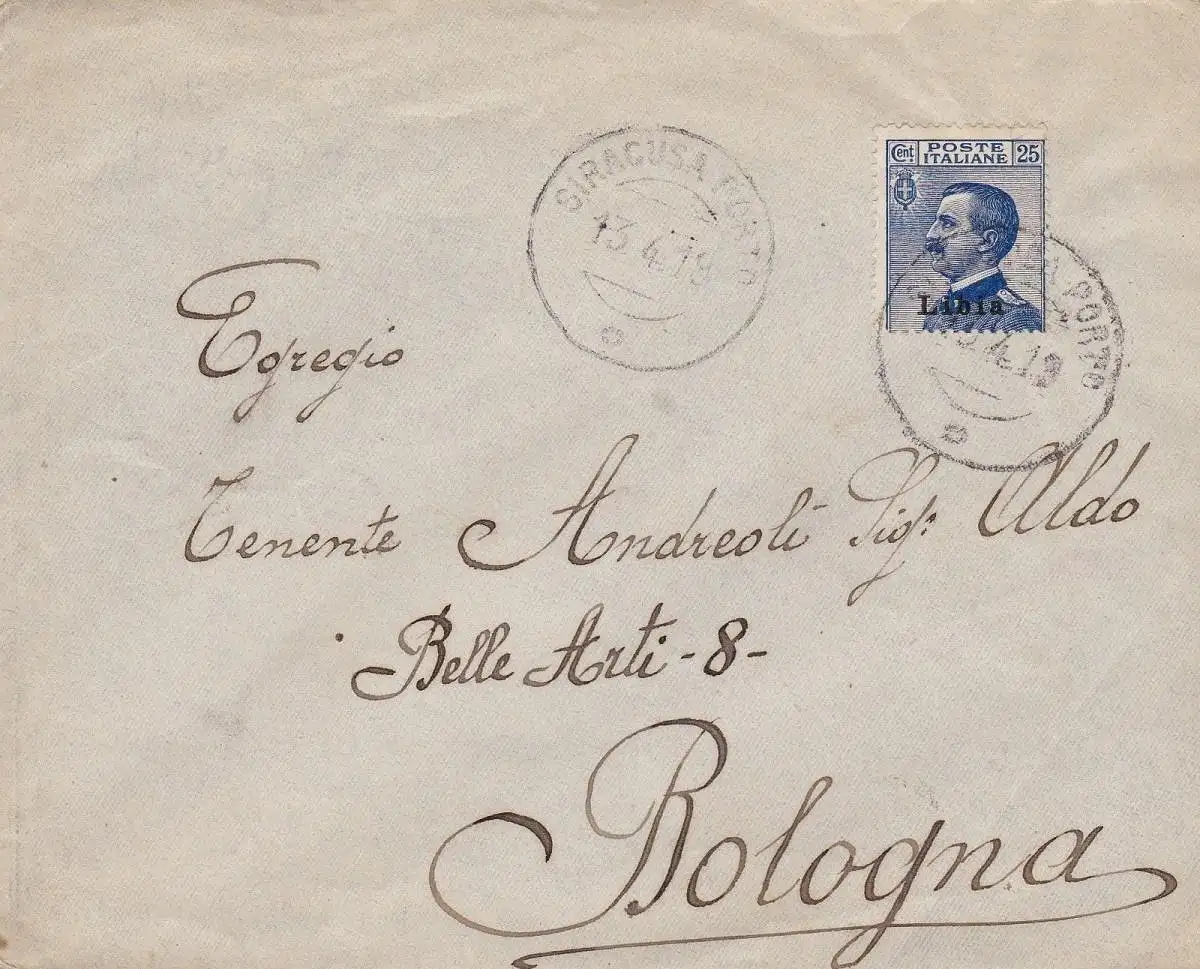 SIRACUSA PORTO
13.4.19
Cent. POSTE ITALIANE 25
Libia
A PORTO
.4.19
Egregio
Tenente Andreoli Sigr. Aldo
Belle Arti - 8 -
Bologna